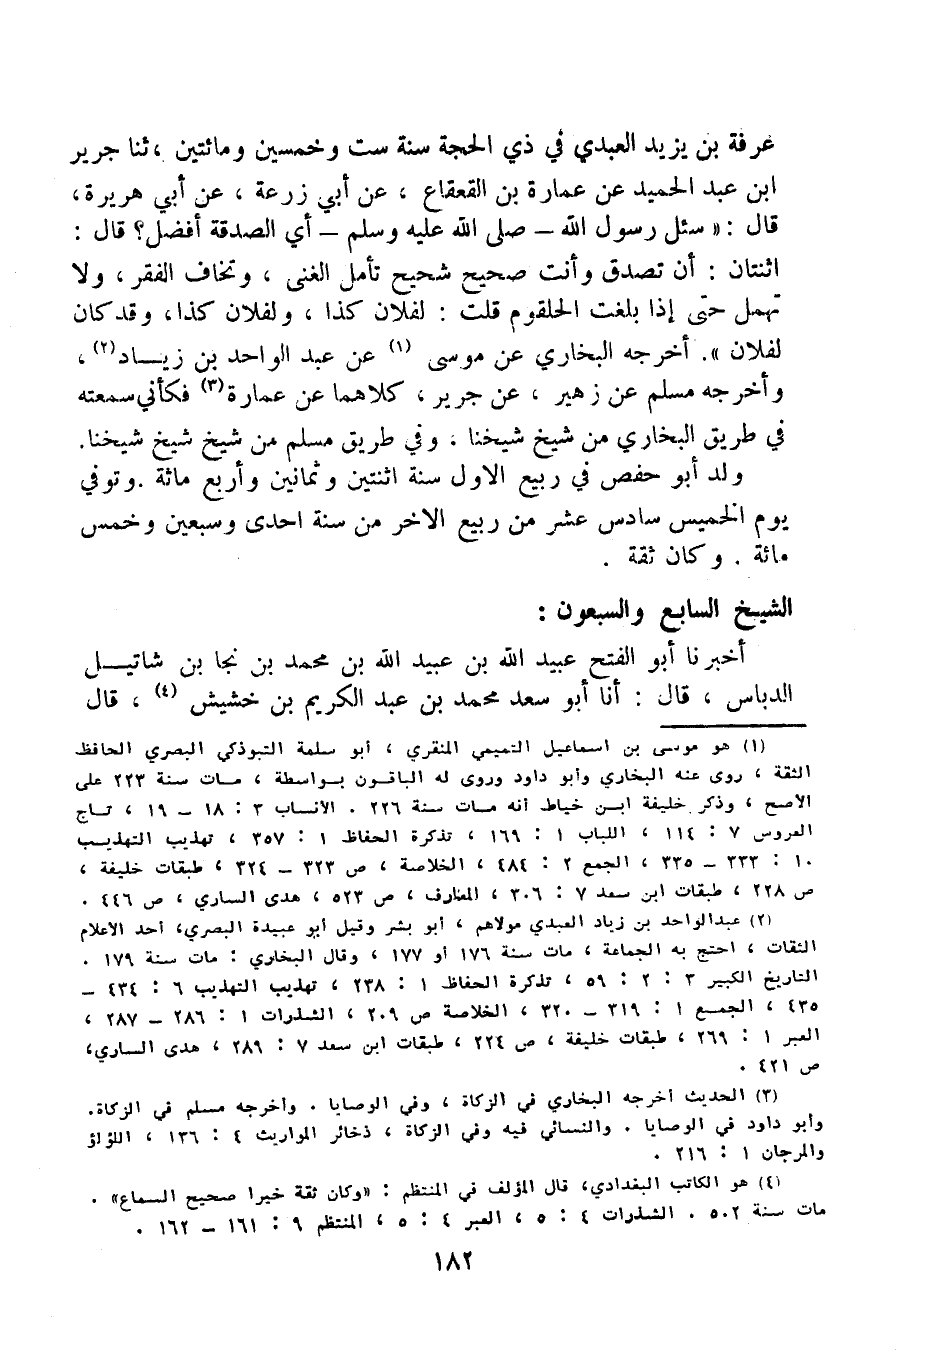 عرفة بن يزيد العبدي في ذي الحجة سنة ست وخمسين ومائتين ، ثنا جرير
ابن عبد الحميد عن عمارة بن القعقاع ، عن أبي زرعة ، عن أبي هريرة ،
قال : « سئل رسول الله – صلى الله عليه وسلم – أي الصدقة أفضل؟ قال :
اثنتان : أن تصدق وأنت صحيح شحيح تأمل الغنى ، وتخاف الفقر ، ولا
تمهل حتى إذا بلغت الحلقوم قلت : لفلان كذا ، ولفلان كذا ، وقد كان
لفلان ». أخرجه البخاري عن موسى (١) عن عبد الواحد بن زيـــاد(٢) ،
وأخرجه مسلم عن زهير ، عن جرير ، كلاهما عن عمارة(٣) فكأني سمعته
في طريق البخاري من شيخ شيخنا ، وفي طريق مسلم من شيخ شيخ شيخنا.
ولد أبو حفص في ربيع الاول سنة اثنتين وثمانين وأربع مائة . وتوفي
يوم الخميس سادس عشر من ربيع الاخر من سنة احدى وسبعين وخمس
مائة . وكان ثقة .
الشيخ السابع والسبعون :
أخبرنا أبو الفتح عبيد الله بن عبيد الله بن محمد بن نجا بن شاتيــل
الدباس ، قال : أنا أبو سعد محمد بن عبد الكريم بن خشيش (٤) ، قال
(١) هو موسى بن اسماعيل التميمي المنقري ، أبو سلمة التبوذكي البصري الحافظ
الثقة ، روى عنه البخاري وأبو داود وروى له الباقون بواسطة ، مات سنة ٢٢٣ على
الاصح ، وذكر خليفة ابن خياط أنه مات سنة ٢٢٦ . الانساب ٣ : ١٨ – ١٩ ، تاج
العروس ٧ : ١١٤ ، اللباب ١ : ١٦٩ ، تذكرة الحفاظ ١ : ٣٥٧ ، تهذيب التهذيب
١٠ : ٣٣٣ – ٣٣٥ ، الجمع ٢ : ٤٨٤ ، الخلاصة ، ص ٣٢٣ – ٣٢٤ ، طبقات خليفة ،
ص ٢٢٨ ، طبقات ابن سعد ٧ : ٣٠٦ ، المعارف ، ص ٥٢٣ ، هدى الساري ، ص ٤٤٦ .
(٢) عبدالواحد بن زياد العبدي مولاهم ، أبو بشر وقيل أبو عبيدة البصري، أحد الاعلام
الثقات ، احتج به الجماعة ، مات سنة ١٧٦ أو ١٧٧ ، وقال البخاري : مات سنة ١٧٩ .
التاريخ الكبير ٣ : ٢ : ٥٩ ، تذكرة الحفاظ ١ : ٢٣٨ ، تهذيب التهذيب ٦ : ٤٣٤ –
٤٣٥ ، الجمع ١ : ٣١٩ – ٣٢٠ ، الخلاصة ص ٢٠٩ ، الشذرات ١ : ٢٨٦ – ٢٨٧ ،
العبر ١ : ٢٦٩ ، طبقات خليفة ، ص ٢٢٤ ، طبقات ابن سعد ٧ : ٢٨٩ ، هدى الساري،
ص ٤٢١ .
(٣) الحديث أخرجه البخاري في الزكاة ، وفي الوصايا . وأخرجه مسلم في الزكاة.
وأبو داود في الوصايا . والنسائي فيه وفي الزكاة ، ذخائر المواريث ٤ : ١٣٦ ، اللؤلؤ
والمرجان ١ : ٢١٦ .
(٤) هو الكاتب البغدادي، قال المؤلف في المنتظم : «وكان ثقة خيرا صحيح السماع» .
مات سنة ٥٠٢ . الشذرات ٤ : ٥ ، العبر ٤ : ٥ ، المنتظم ٩ : ١٦١ – ١٦٢ .
١٨٢